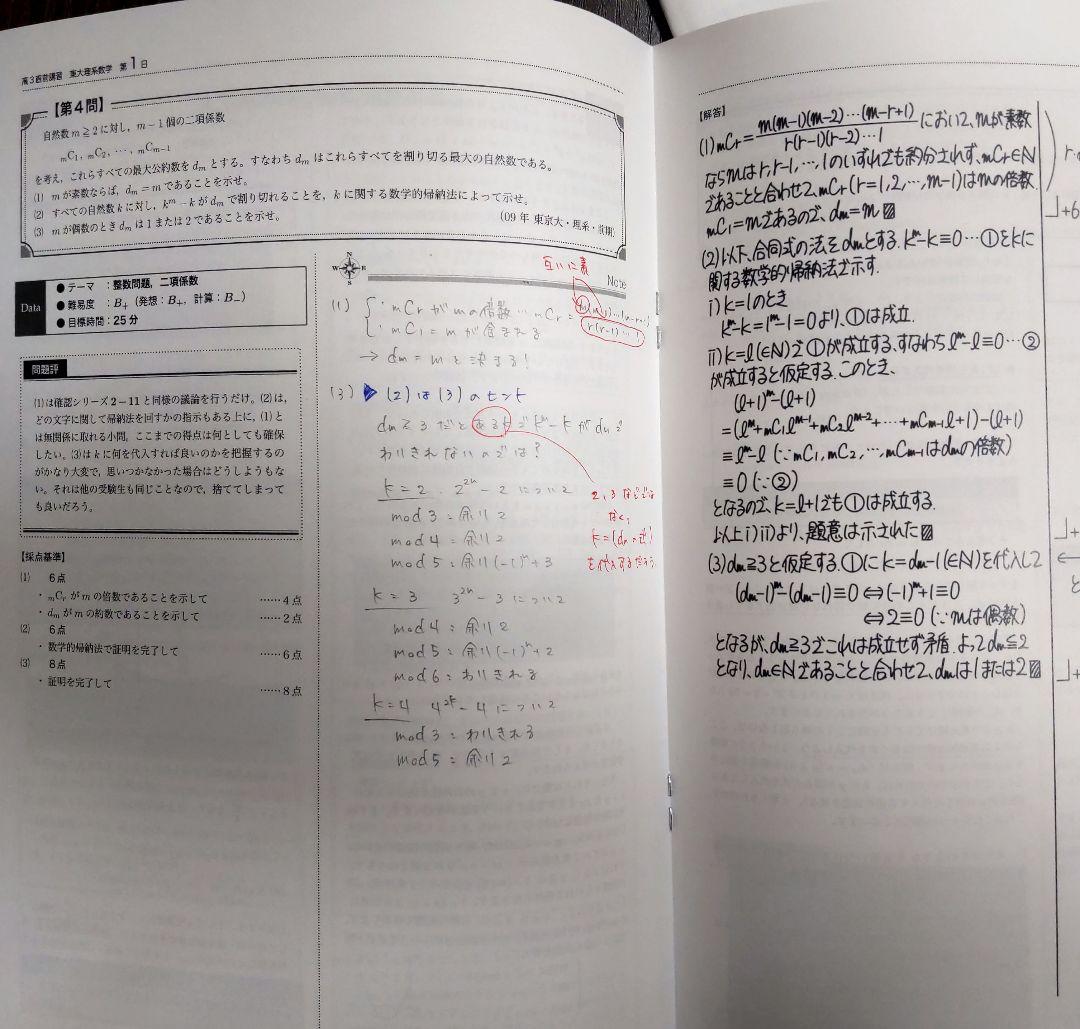 高3直前講習 東大理系数学 第1日
【第4問】
自然数 m ≧ 2 に対し, m − 1 個の二項係数
mC1, mC2, …, mCm−1
を考え, これらすべての最大公約数を dm とする。すなわち dm はこれらすべてを割り切る最大の自然数である。
(1) m が素数ならば, dm = m であることを示せ。
(2) すべての自然数 k に対し, k^m − k が dm で割り切れることを, k に関する数学的帰納法によって示せ。
(3) m が偶数のとき dm は 1 または 2 であることを示せ。
(09年 東京大・理系・前期)
Data
●テーマ :整数問題, 二項係数
●難易度 :B+(発想:B+, 計算:B−)
●目標時間:25分
問題評
(1)は確認シリーズ2−11と同様の議論を行うだけ。(2)は,
どの文字に関して帰納法を回すかの指示もある上に, (1)と
は無関係に取れる小問。ここまでの得点は何としても確保
したい。(3)は k に何を代入すれば良いのかを把握するの
がかなり大変で, 思いつかなかった場合はどうしようもな
い。それは他の受験生も同じことなので, 捨ててしまって
も良いだろう。
【採点基準】
(1) 6点
・mCr が m の倍数であることを示して ……4点
・dm が m の約数であることを示して ……2点
(2) 6点
・数学的帰納法で証明を完了して ……6点
(3) 8点
・証明を完了して ……8点
Note
互いに素
(1) ・mCrがmの倍数… mCr =
r(r-1)…1
・mC1=mが含まれる
→ dm=mと決まる!
(3) (2)は(3)のヒント
dm≧3だとあるkでk^m-kがdmで
わりきれないのでは?
k=2. 2^2n-2について
mod3:余り2
mod4:余り2
mod5:余り(-1)^n+3
k=3 3^2n-3について
mod4:余り2
mod5:余り(-1)^n+2
mod6:わりきれる
k=4 4^2k-4について
mod3:わりきれる
mod5:余り2
2,3などでは
なく,
を代入するだろう
【解答】
(1) mCr = m(m-1)(m-2)…(m-r+1) / r(r-1)(r-2)…1 において, mが素数
ならmはr,r-1,…,1のいずれでも約分されず, mCr∈N
であることと合わせて, mCr(r=1,2,…,m-1)はmの倍数.
mC1=mであるので, dm=m
(2)以下, 合同式の法をdmとする. k^m-k≡0…①をkに
関する数学的帰納法で示す.
i) k=1のとき
k^m-k=1^m-1=0より, ①は成立.
ii) k=l(∈N)で①が成立する, すなわちl^m-l≡0…②
が成立すると仮定する. このとき,
(l+1)^m-(l+1)
=(l^m+mC1l^m-1+mC2l^m-2+…+mCm-1l+1)-(l+1)
≡l^m-l (∵mC1,mC2,…,mCm-1はdmの倍数)
≡0 (∵②)
となるので, k=l+1でも①は成立する.
以上i)ii)より, 題意は示された
(3) dm≧3と仮定する. ①にk=dm-1(∈N)を代入して
(dm-1)^m-(dm-1)≡0⇔(-1)^m+1≡0
⇔2≡0(∵mは偶数)
となるが, dm≧3でこれは成立せず矛盾. よってdm≦2
となり, dm∈Nであることと合わせて, dmは1または2